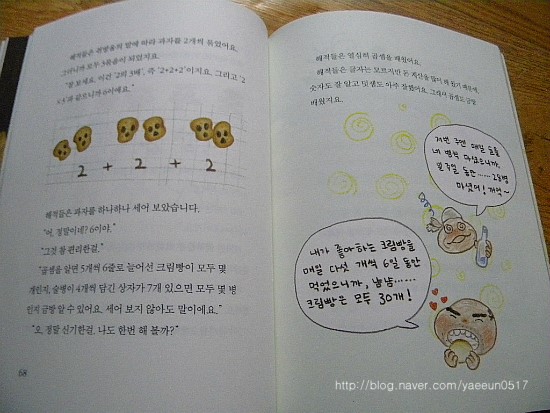 해적들은 권법율의 말에 따라 과자를 2개씩 묶었어요.
그러니까 모두 3묶음이 되었지요.
"잘 보세요. 이건 '2의 3배', 즉 '2+2+2'이지요. 그리고 '2
×3'과 같으니까 6이에요."
2 + 2 + 2
해적들은 과자를 하나하나 세어 보았습니다.
"어, 정말이네? 6이야."
"그것 참 편리한걸."
"곱셈을 알면 5개씩 6줄로 늘어선 크림빵이 모두 몇
개인지, 술병이 4개씩 담긴 상자가 7개 있으면 모두 몇 병
인지 금방 알 수 있어요. 세어 보지 않아도 말이에요."
"오, 정말 신기한걸. 나도 한번 해 볼까?"
68
해적들은 열심히 곱셈을 배웠어요.
해적들은 글자는 모르지만 돈 계산을 많이 해 왔기 때문에,
숫자도 잘 알고 덧셈도 아주 잘했어요. 그래서 곱셈도 금방
배웠지요.
저번 주엔 매일 술을
네 병씩 마셨으니까,
일주일 동안……28병
마셨어! 꺼억~
내가 좋아하는 크림빵을
매일 다섯 개씩 6일 동안
먹었으니까, 냠냠……
크림빵은 모두 30개!
http://blog.naver.com/yaeeun0517